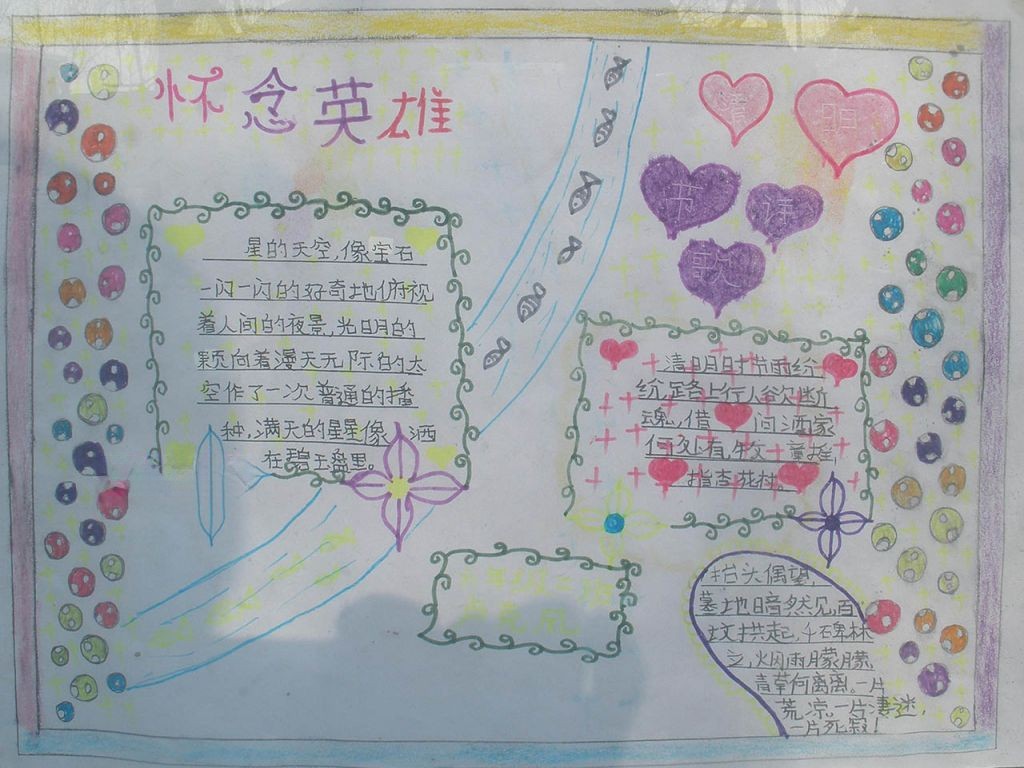 怀念英雄
清明
节诗
歌
星的天空,像宝石
一闪一闪的好奇地俯视
着人间的夜景,光明月的
颗向着漫天无际的太
空作了一次普通的播
种,满天的星星像 洒
在碧玉盘里。
清明时节雨纷
纷,路上行人欲断
魂,借 问酒家
何处有,牧 童摇,
指杏花村。
抬头偶望,
墓地暗然见,百
坟拱起,千碑林
立,烟雨朦朦,
青草何离离。一片
荒凉,一片凄迷,
一片死寂!